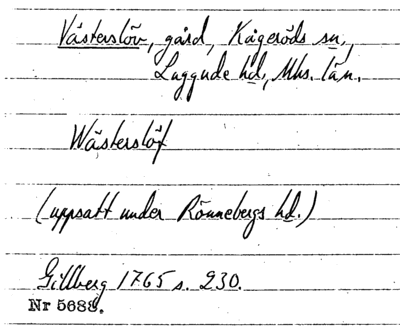 Västerslöv, gård, Kågeröds sn,
Luggude hd, Mhs. län.
Wästerslöf
(uppsatt under Rönnebergs hd.)
Gillberg 1765 s. 230.
Nr 5688.